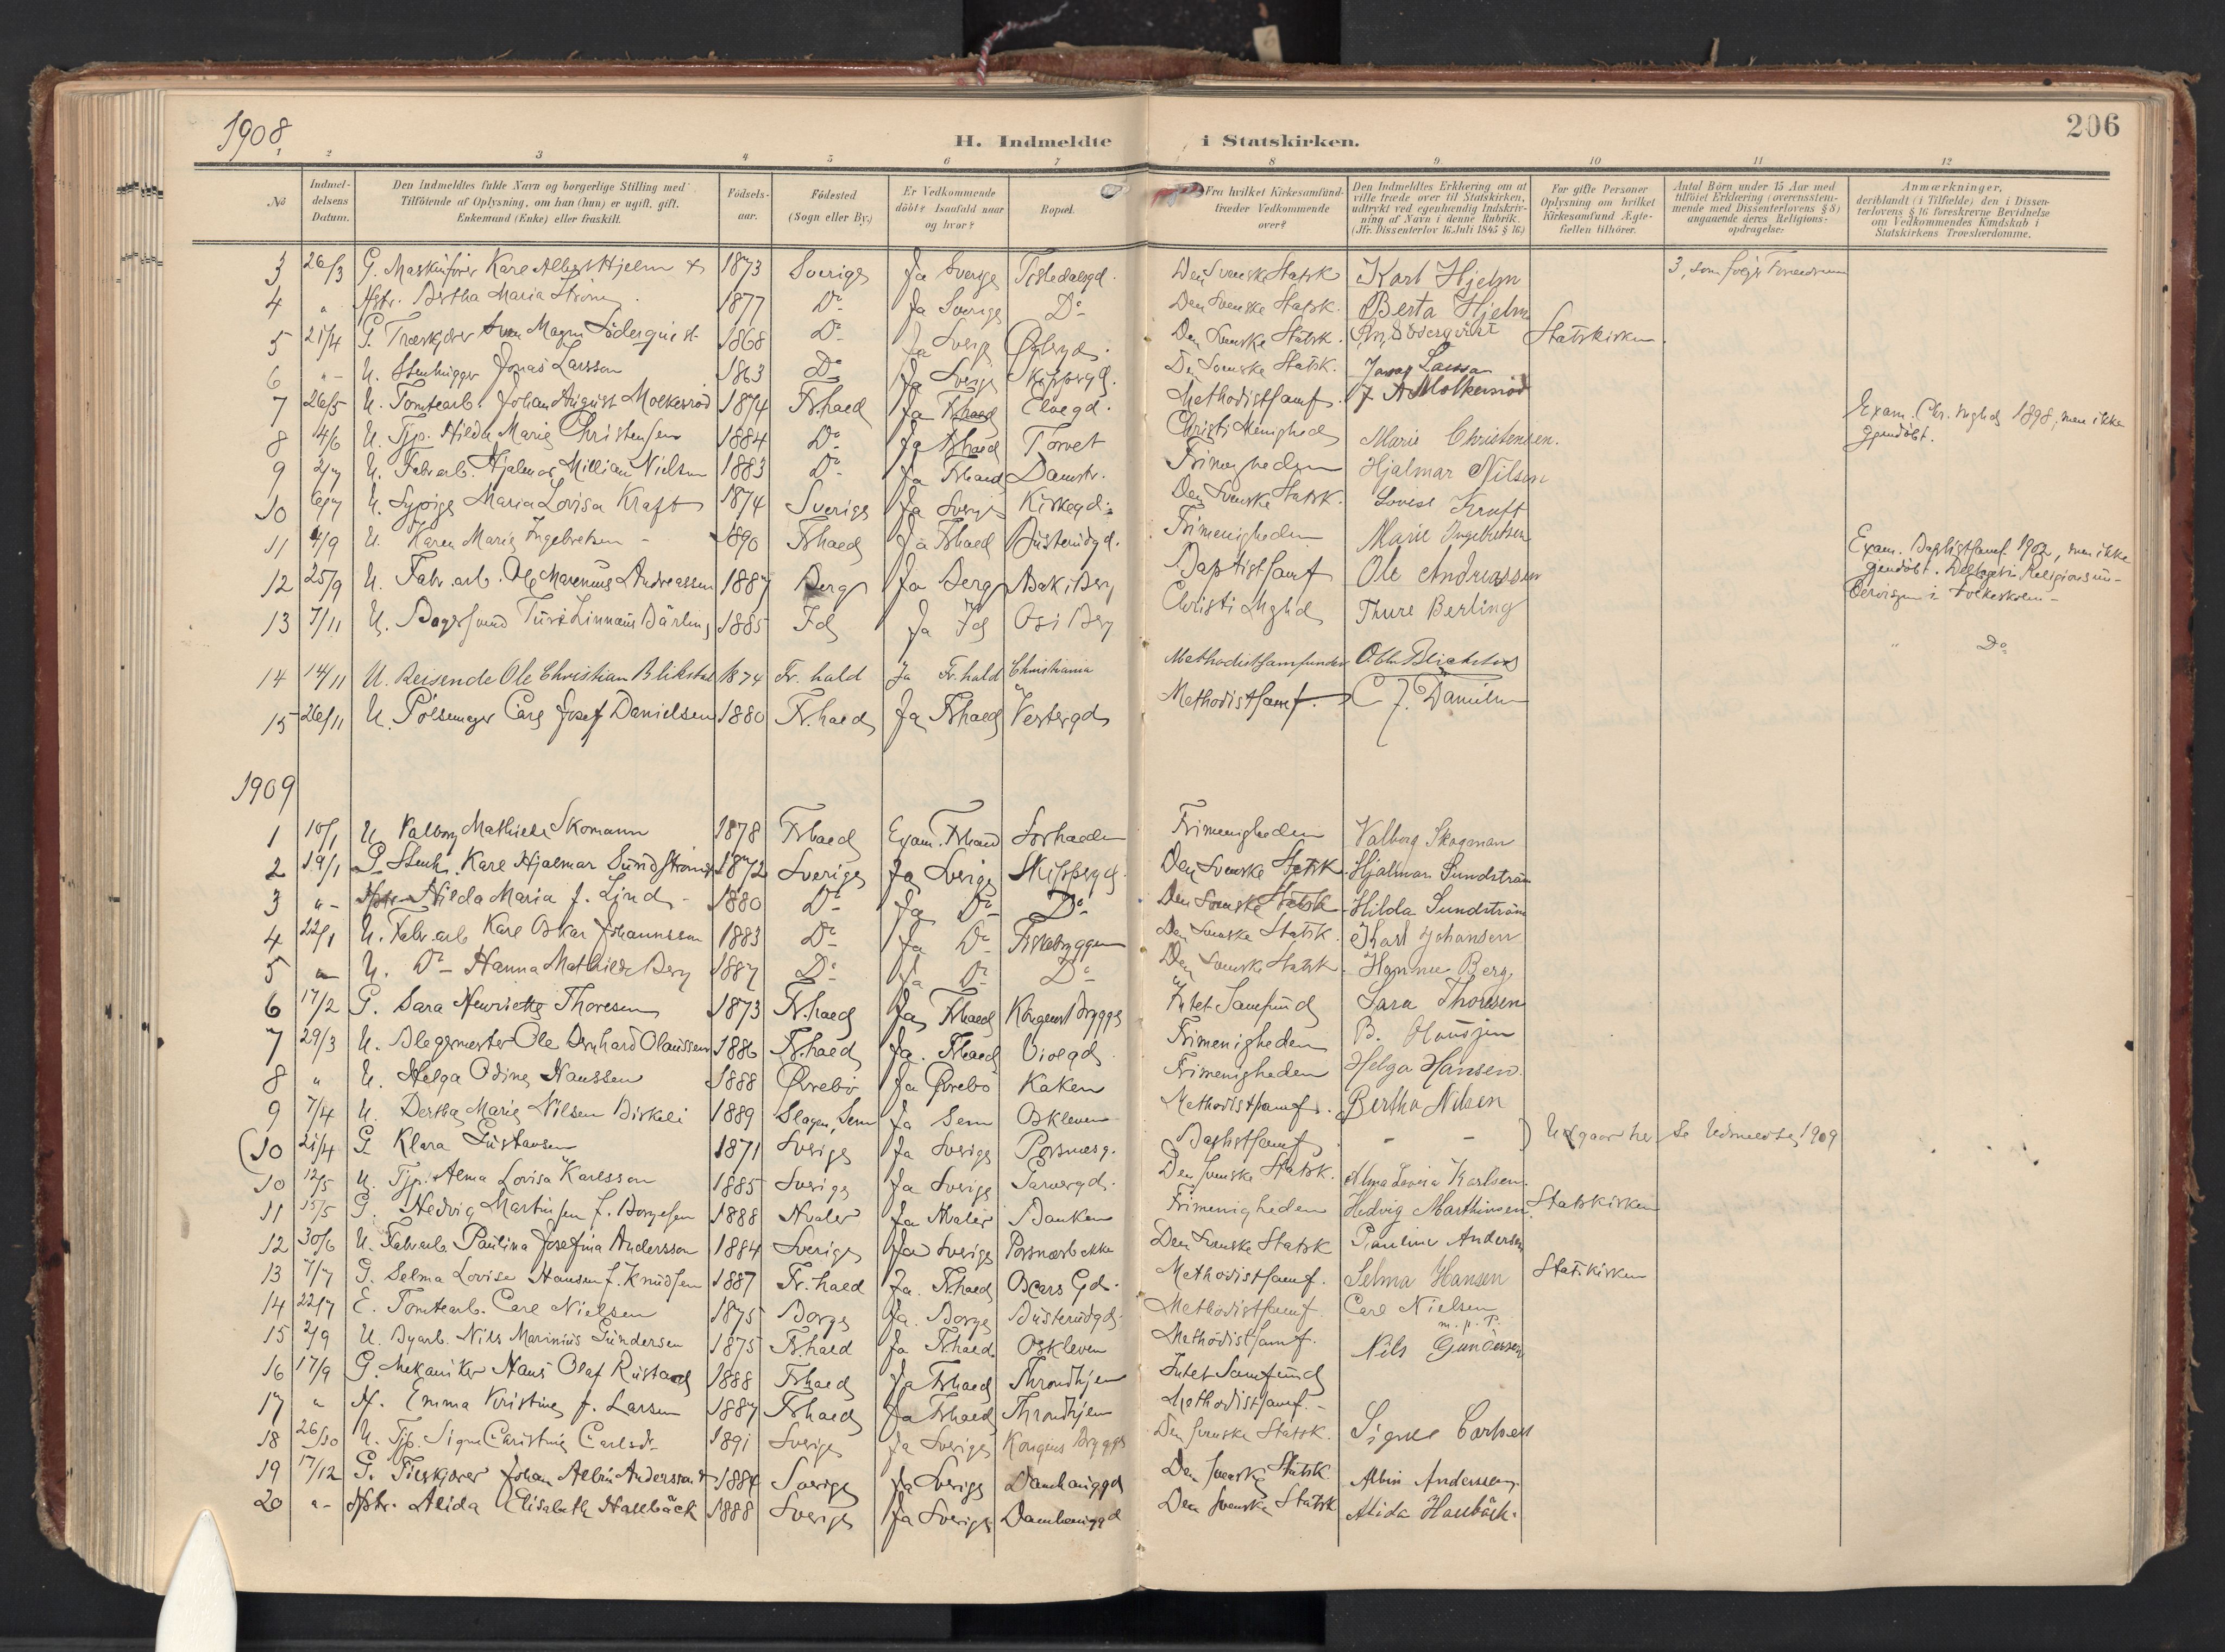 1908
206
H. Indmeldte i Statskirken.
1 2 3 4 5 6 7 8 9 10 11 12
No
Indmeldelsens Datum.
Den Indmeldtes fulde Navn og borgerlige Stilling med Tilföiende af Oplysning, om han (hun) er ugift, gift, Enkemand (Enke) eller fraskilt.
Födselsaar.
Födested (Sogn eller By.)
Er Vedkommende döbt? Isaafald naar og hvor?
Bopæl.
Fra hvilket Kirkesamfund træder Vedkommende over?
Den Indmeldtes Erklæring om at ville træde over til Statskirken, udtrykt ved egenhændig Indskrivning af Navn i denne Rubrik. (Jfr. Dissenterlov 16 Juli 1845 § 16)
For gifte Personer Oplysning om hvilket Kirkesamfund Ægtefællen tilhörer.
Antal Börn under 15 Aar med tilföiet Erklæring (overensstemmende med Dissenterlovens § 8) angaaende deres Religionsopdragelse:
Anmærkninger, deriblandt (i Tilfælde) den i Dissenterlovens § 16 foreskrevne Bevidnelse om Vedkommendes Kundskab i Statskirkens Troeslærdomme.
3 26/3 G. Maskinfører Karl Albert Hjelm 1873 Sverige Ja Sverige Tistedalsgd. Den Svenske Statsk Karl Hjelm 3, som følger Forældrene
4 " Hstr. Bertha Maria Ström 1877 Do Ja Sverige Do Den Svenske Statsk. Berta Hjelm
5 21/4 G. Træskjærer Sven Magnus Söderquist 1868 Do Ja Sverige Øybergd. Den Svenske Statsk. Söderqvist Statskirken.
6 " U. Stenhugger Jonas Larsson 1863 Do Ja Sverige Skippergd. Den Svenske Statsk. Jonas Larsson
7 26/5 U. Tomtearb. Johan August Molkersröd 1874 Fr.hald Ja Frhald Elvegd. Methodistsamf. J A Molkersröd
8 4/6 U. Tjp. Hilda Marie Christensen 1884 Do Ja Frhald Torvet Christi Menighed Marie Christensen. Exam. Chr. mghd 1898, men ikke gjendöbt.
9 2/7 U. Fabr.arb. Hjalmar Millian Nielsen 1883 Do Ja Frhald Damstr. Frimenigheden Hjalmar Nilsen
10 6/7 U. Sypige Maria Lovisa Kraft 1874 Sverige Ja Sverige Kirkegd. Den Svenske Statsk. Lovise Kraft
11 4/9 U. Karen Marie Ingebretsen 1890 Frhald Ja Frhald Busterudgd. Frimenigheden Marie Ingebretsen
12 25/9 U. Fabr.arb. Ole Marenius Andreassen 1887 Berg Ja Berg Bak i Berg Baptistsamf Ole Andreassen Exam. Baptistsamf. 1902, men ikke gjendöbt. Deltaget i Religionsundervisn. i Folkeskolen
13 7/11 U. Bagersvend Ture Linnaus Bärling 1885 Id Ja Id Os i Berg Christi Mghd Thure Berling " Do
14 14/11 U. Reisende Ole Christian Blikstad 1874 Fr. hald Ja Fr. hald Christiania Methodistsamfundet O. Chr Blichstad
15 26/11 U. Pölsemager Carl Josef Danielsen 1880 Fr.hald Ja Frhald Vestergd Methodistsamf. C J. Danielsen
1909
1 10/1 U Valborg Mathilde Skomann 1878 Frhald Exam. Frhald Sørhalden Frimenigheden Valborg Skogman
2 19/1 G Stenh. Karl Hjalmar Sundström 1872 Sverige Ja Sverige Skippergd. Den Svenske Statsk Hjalmar Sundström
3 " Hstr Hilda Maria f. Lind 1880 Do Ja Do Do Den Svenske Statsk Hilda Sundström
4 22/1 U. Fabr.arb Karl Oskar Johannsson 1883 Do Ja Do Fiskebryggen Den Svenske Statsk. Karl Johansen
5 " U. Do Hanna Mathilde Berg 1887 Do Ja Do Do Den Svenske Statsk. Hanna Berg
6 17/2 G. Sara Henriette Thoresen 1873 Fr.hald Ja Frhald Kongens Brygge Intet Samfund Sara Thoresen
7 29/3 U. Blegermester Ole Bernhard Olaussen 1886 Fr.hald Ja. Frhald Violgd Frimenigheden B. Olaussen
8 " U. Helga Odine Hanssen 1888 Øvrebö Ja Øvrebö Kaken Frimenigheden Helga Hansen.
9 7/4 U. Bertha Marie Nilsen Birkeli 1889 Slagen, Sem Ja Sem Oskleven Methodistsamf. Bertha Nilsen
(10 21/4 G Klara Gustavsen 1871 Sverige Ja Sverige Porsnesg. Baptistsamf. - - ) Udgaar her Se Udmeldte 1909
10 12/5 U. Tjp. Alma Lovisa Karlsson 1885 Sverige Ja Sverige Garvergd. Den svenske Statsk. Alma Lovisa Karlsen.
11 15/5 G. Hedvig Martinsen f. Borgesen 1888 Hvaler Ja Hvaler Banken Frimenigheden Hedvig Marthinsen Statskirken
12 30/6 U. Fabr.arb. Paulina Josefina Andersson 1884 Sverige Ja Sverige Porsnesbakke Den Svenske Statsk Pauline Andersen
13 7/7 G. Selma Lovise Hansen f. Knudsen 1887 Fr.hald Ja. Frhald Oscars Gd. Methodistsamf. Selma Hansen Statskirken
14 22/7 E. Tomtearb. Carl Nielsen 1875 Borge Ja. Borge Busterudgd. Methodistsamf Carl Nielsen m. p. P.
15 2/9 U. Byarb. Nils Marinius Gundersen 1875 Frhald Ja Frhald Oskleven Methodistsamf. Nils Gundersen
16 17/9 G. Mekaniker Hans Olaf Rustad 1888 Frhald Ja Frhald Throndhjem Intet Samfund
17 " H. Emma Kristine f. Larsen 1887 Frhald Ja Frhald Throndhjem Methodistsamf. -
18 26/10 U. Tjp. Signe Christine Carlsd. 1891 Sverige Ja Sverige Kongens Brygge Den svenske Statsk. Signe Carlsen
19 17/12 G. Fileskjærer Johan Albin Andersson 1884 Sverige Ja Sverige Damhauggd Den svenske Statsk Albin Andersson
20 " Hstr. Alida Elisabeth Hallbäck 1888 Sverige Ja Sverige Damhauggd Den svenske Statsk Alida Hallbäck.